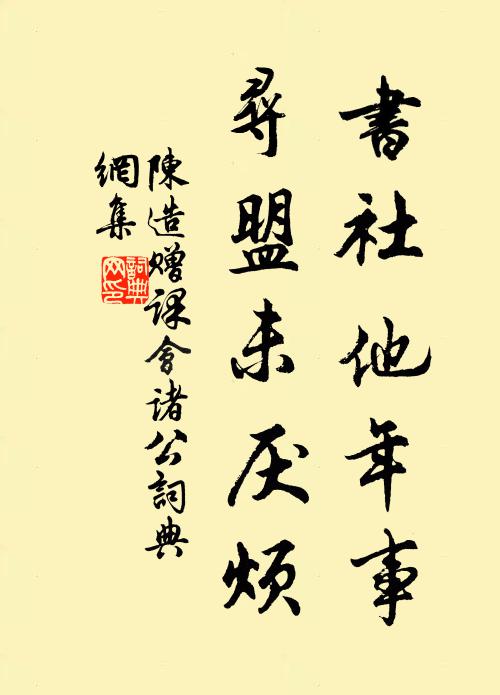 書社他年事
尋盟未厌煩
陳造贈課會諸公詞典
網集
詞典
网印